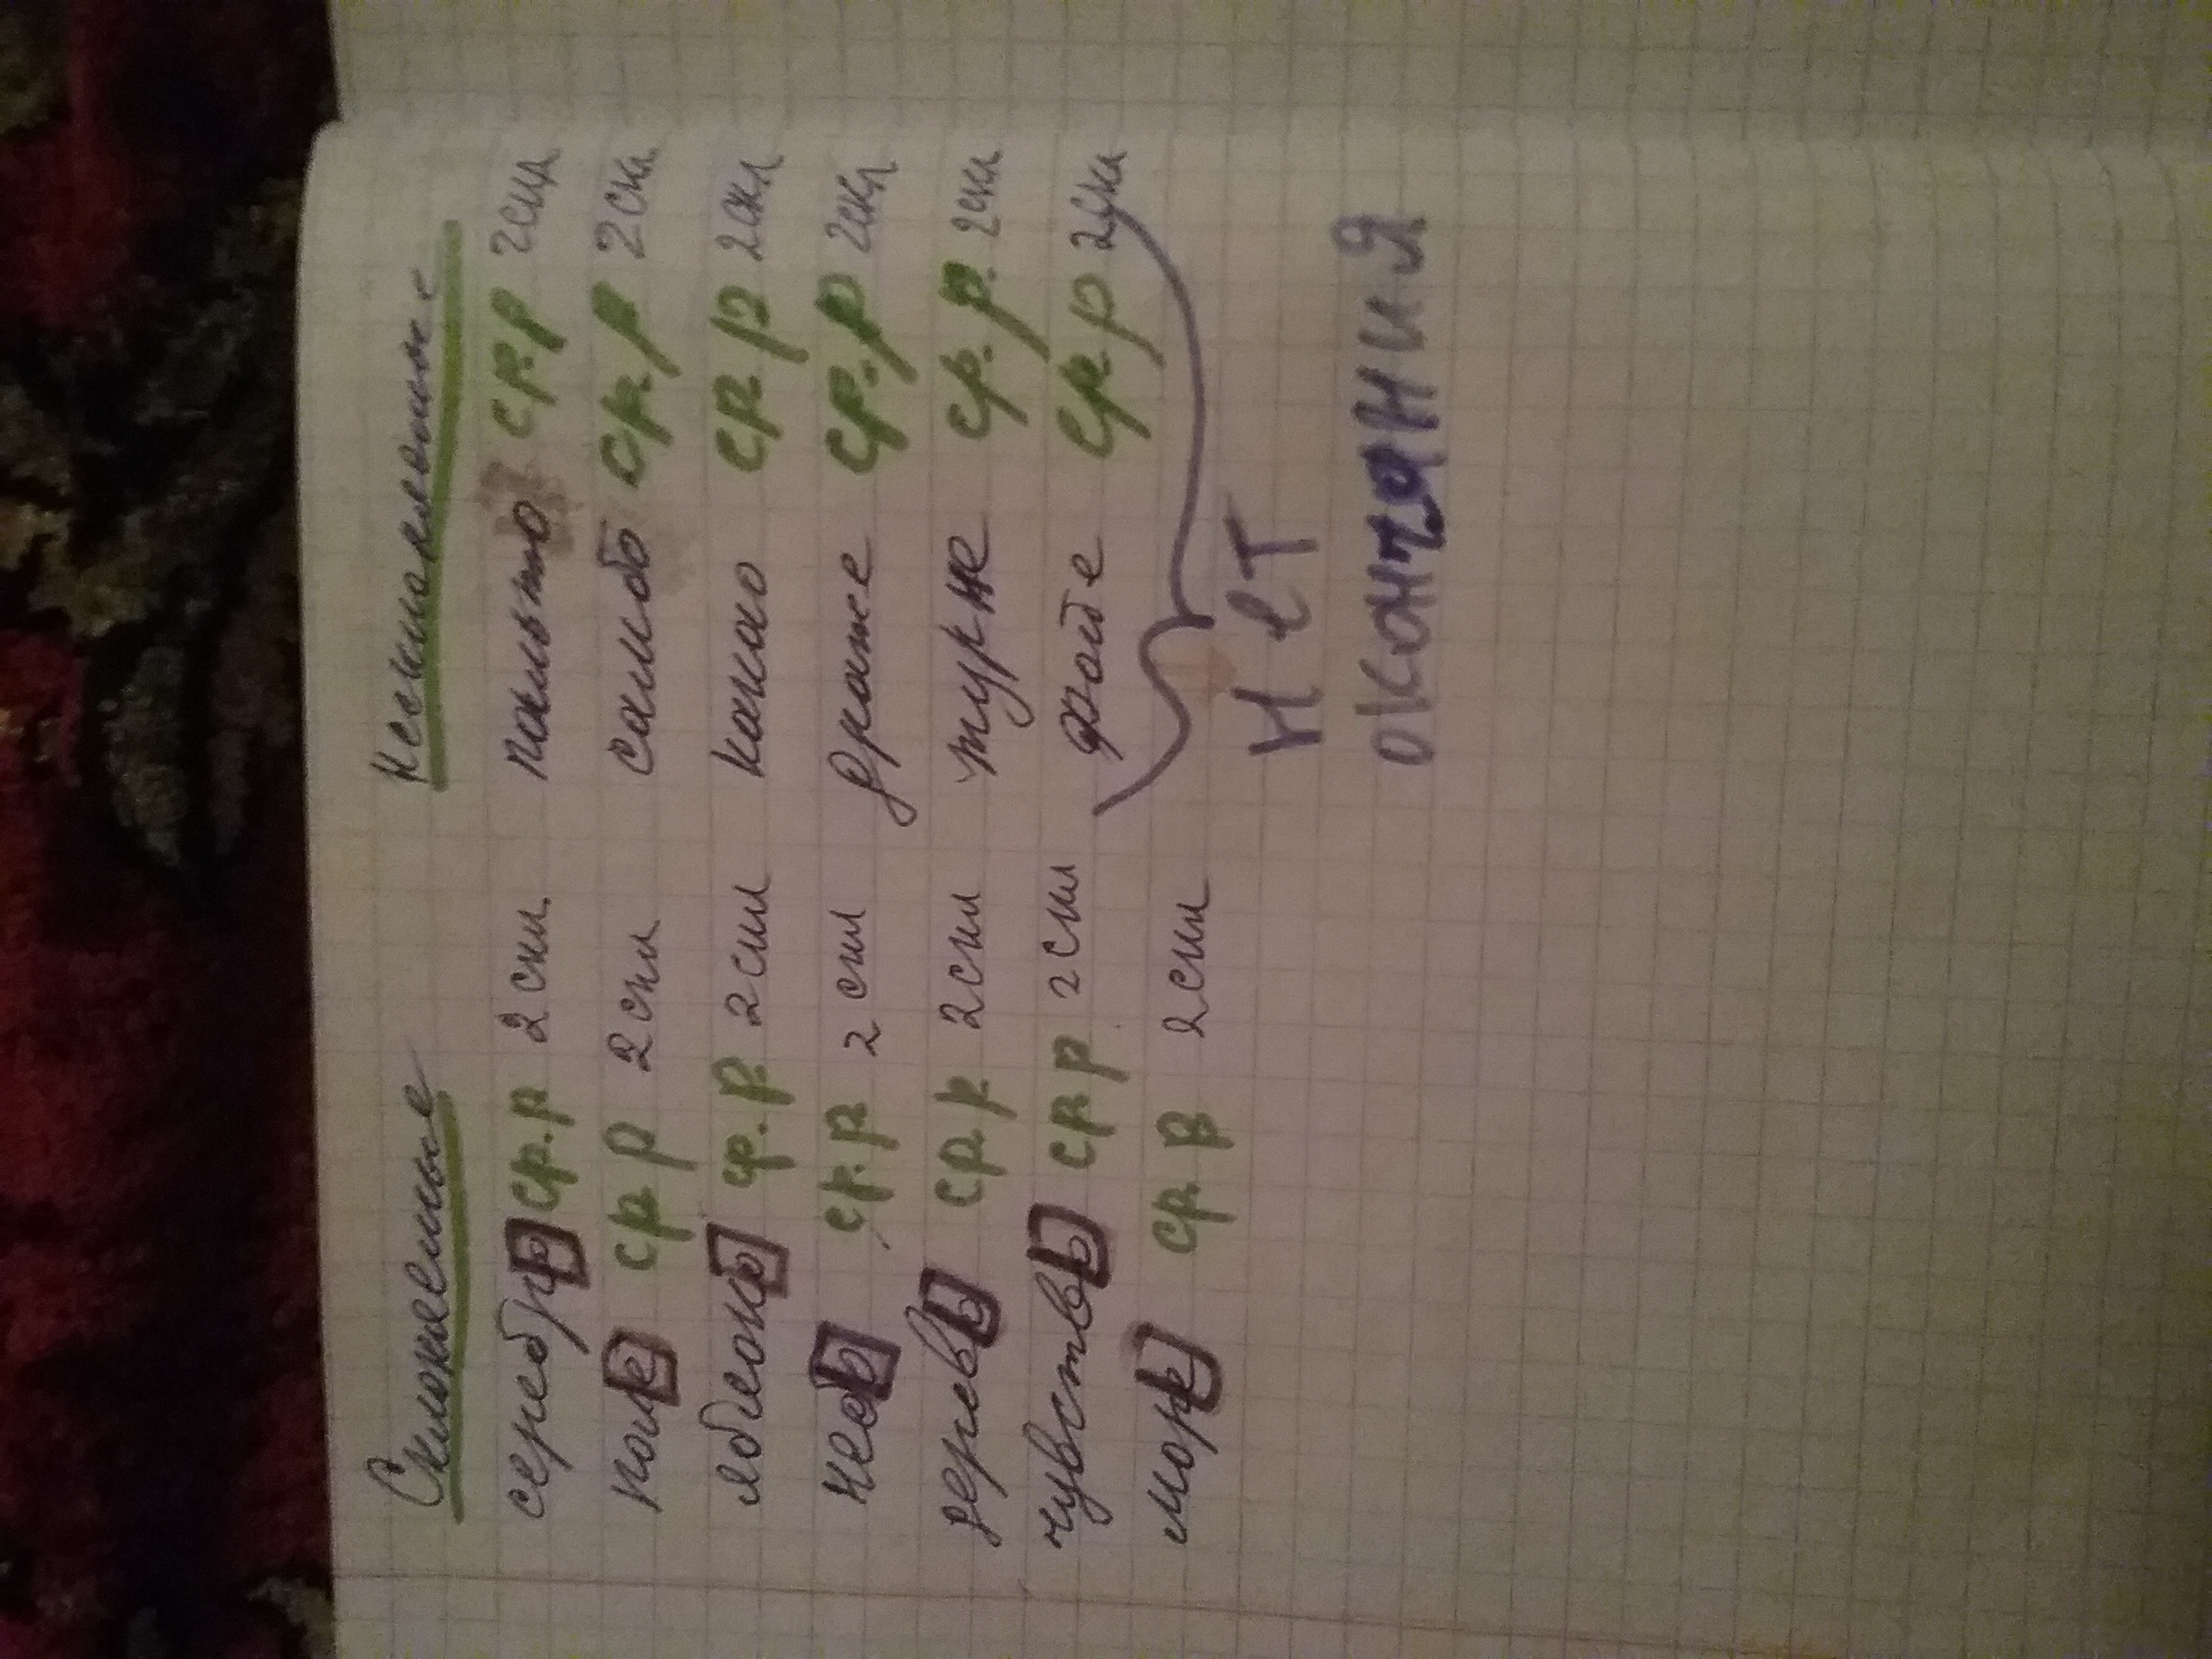 Склоняемые Несклоняемые
серебро ср.р 2 скл. пальто ср.р 2скл
поле ср р 2 скл самбо ср.р 2 скл
яблоко ср.р. 2 скл какао ср р 2скл
небо ср.р 2 скл драже ср.р 2скл
дерево ср р 2скл турне ср.р. 2скл
чувство ср р 2 скл фойе ср р 2скл
море ср р 2скл
Нет
окончания